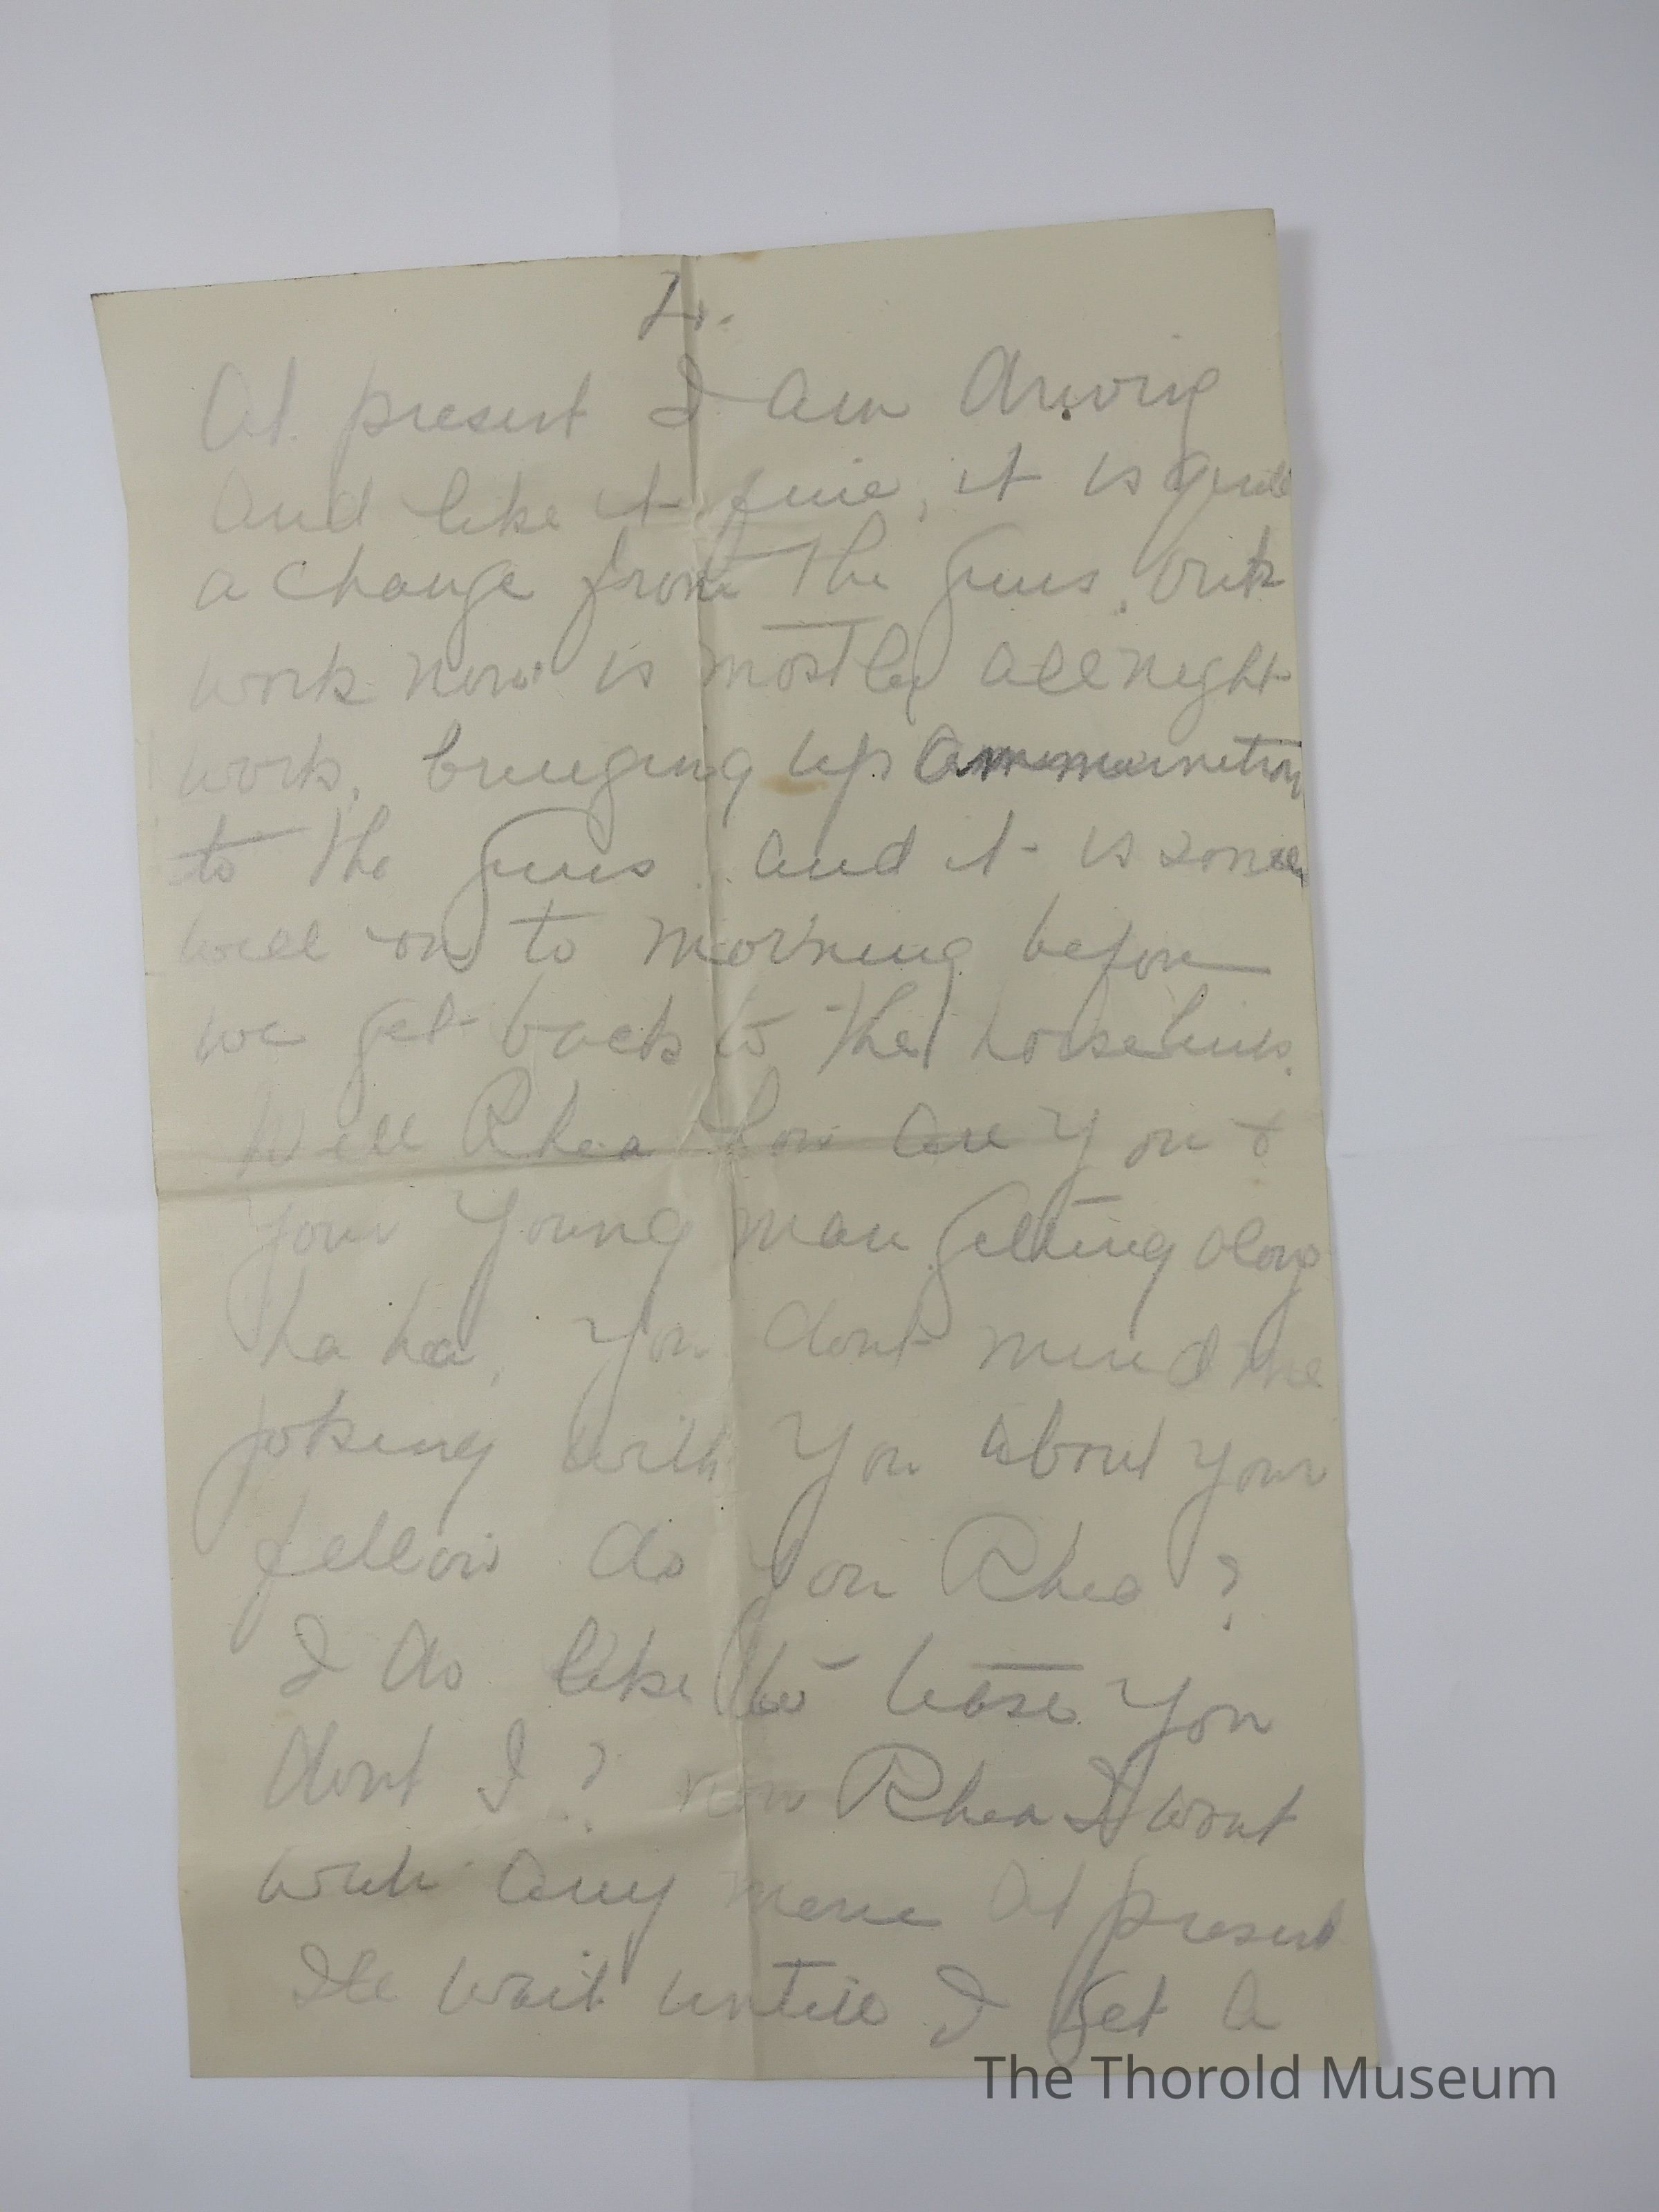 4.
At present I am driving
and like it fine, it is quite
a change from the guns, our
work now is mostly all night
work, bringing up ammunition
to the guns and it is some
well on to morning before
we get back to the horselines.
Well Rhea how are you &
your young man getting along
ha ha, you dont mind me
joking with you about your
fellow do you Rhea ?
I do like to tease you
dont I ? now Rhea I wont
write any more at present
Ile wait untill I get a
The Thorold Museum